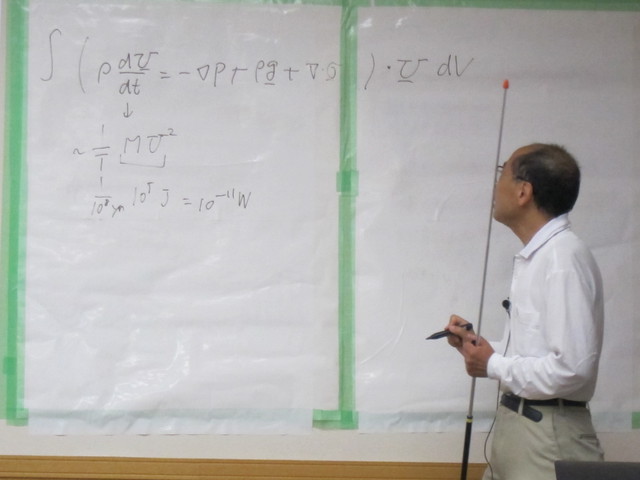 ∫ ( ρ dv/dt = -∇P + ρg + ∇·σ ) · v dV
↓
~ 1/T M v²
1/10⁸yr 10⁵ J = 10⁻¹¹ W